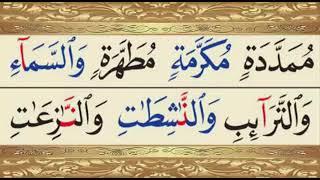 مُمَدَّدَةٍ مُكَرَّمَةٍ مُطَهَّرَةٍ وَالسَّمَآءِ
وَالتَّرَآئِبِ وَالنّٰشِطٰتِ وَالنّٰزِعٰتِ